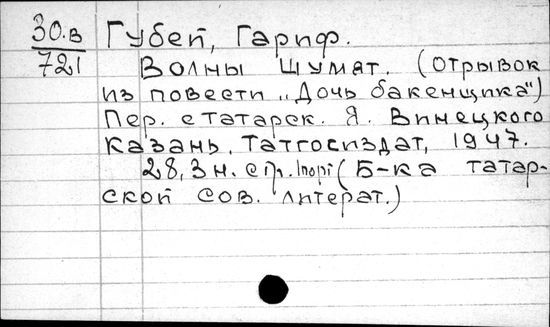 30.в Губей, Гариф.
721 Волны шумят. (отрывок
из повести „Дочь бакенщика“)
Пер. с татарск. Я. Винецкого
Казань, Татгосиздат, 1947.
28, 3 н. с 1 л. порт (Б-ка татар-
ской сов. литерат.)